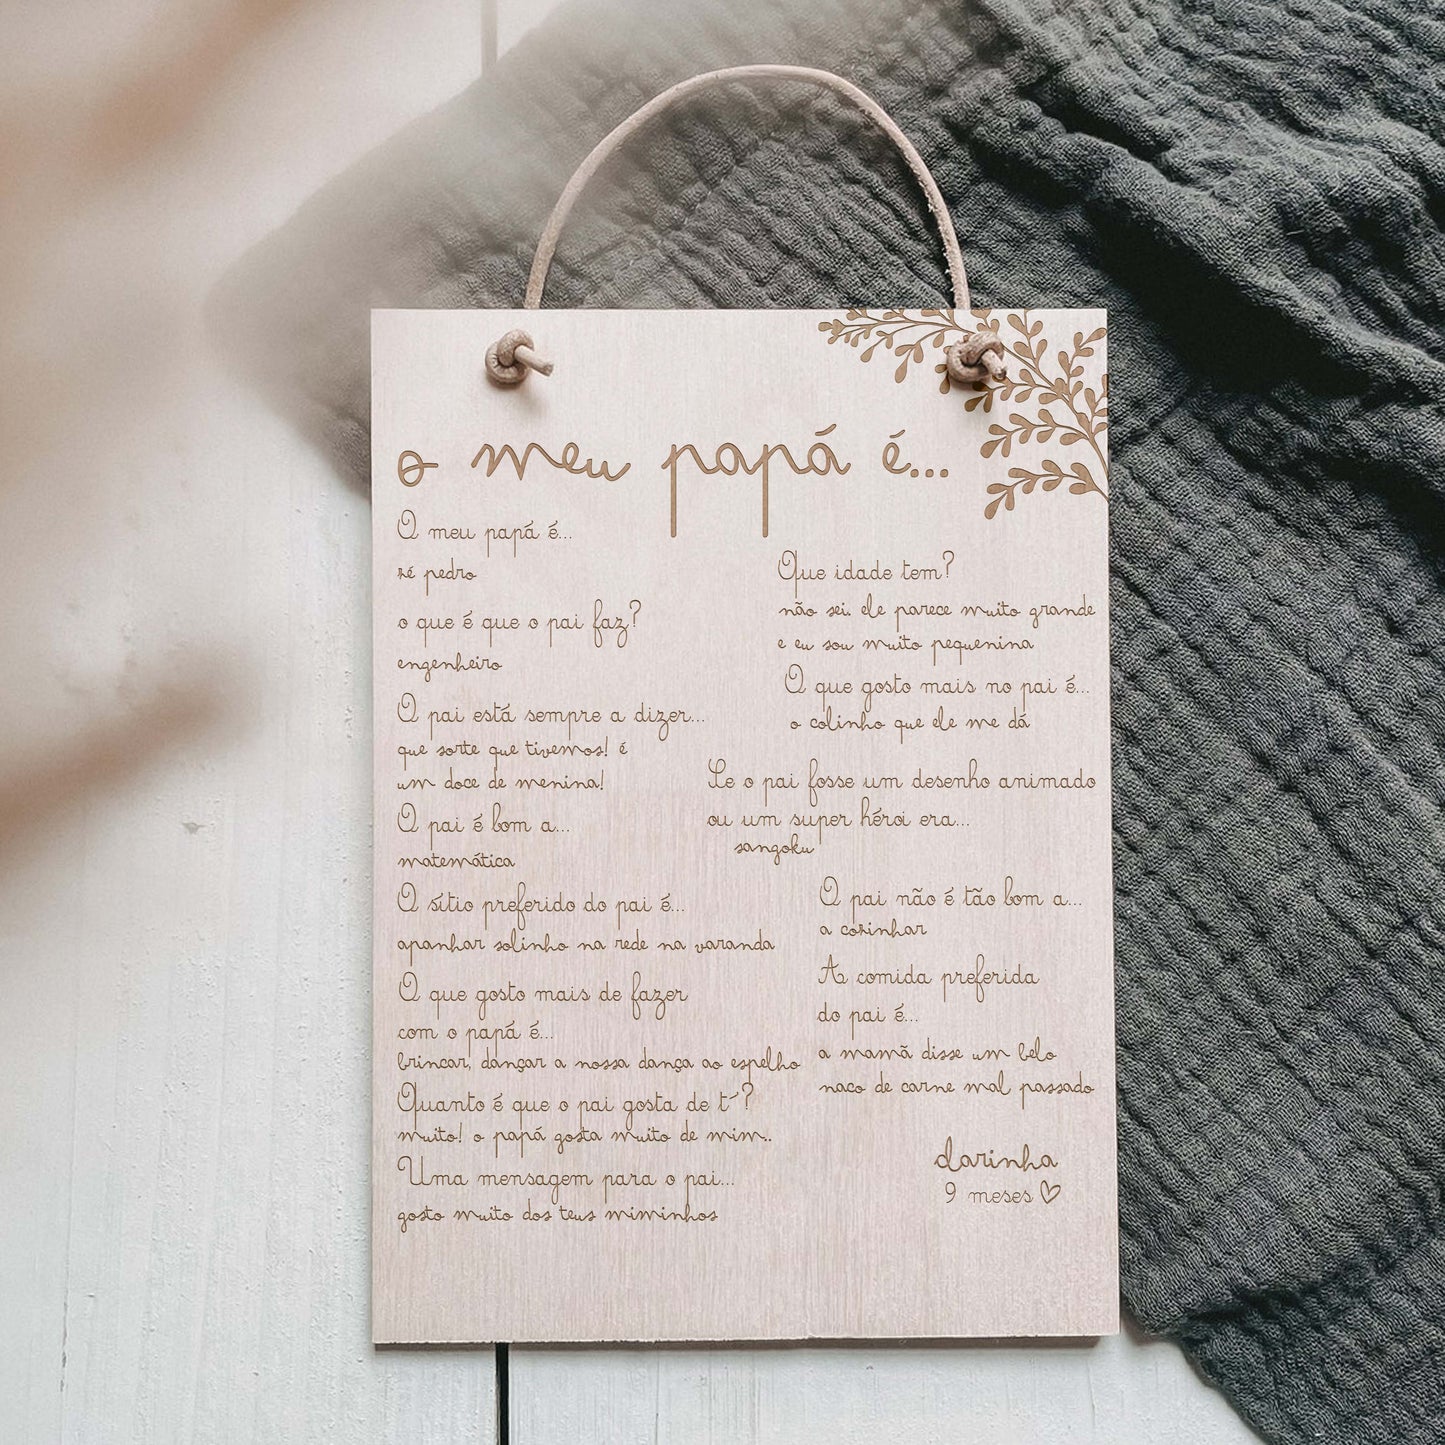 o meu papá é...
O meu papá é...
zé pedro
o que é que o pai faz?
engenheiro
O pai está sempre a dizer...
que sorte que tivemos! é
um doce de menina!
O pai é bom a...
matemática
O sítio preferido do pai é...
apanhar solinho na rede na varanda
O que gosto mais de fazer
com o papá é...
brincar, dançar a nossa dança ao espelho
Quanto é que o pai gosta de t´?
muito! o papá gosta muito de mim..
Uma mensagem para o pai...
gosto muito dos teus miminhos
Que idade tem?
não sei. ele parece muito grande
e eu sou muito pequenina
O que gosto mais no pai é...
o colinho que ele me dá
Se o pai fosse um desenho animado
ou um super héroi era...
sangoku
O pai não é tão bom a...
a cozinhar
A comida preferida
do pai é...
a mamã disse um belo
naco de carne mal passado
clarinha
9 meses